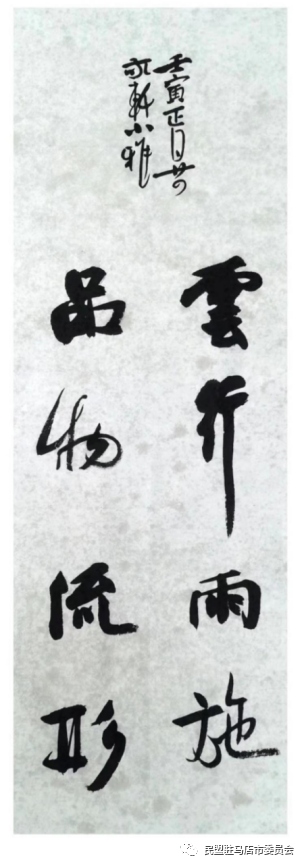 雲行雨施
品物流形
壬寅正月廿四
永軒小雅
民盟驻马店市委员会